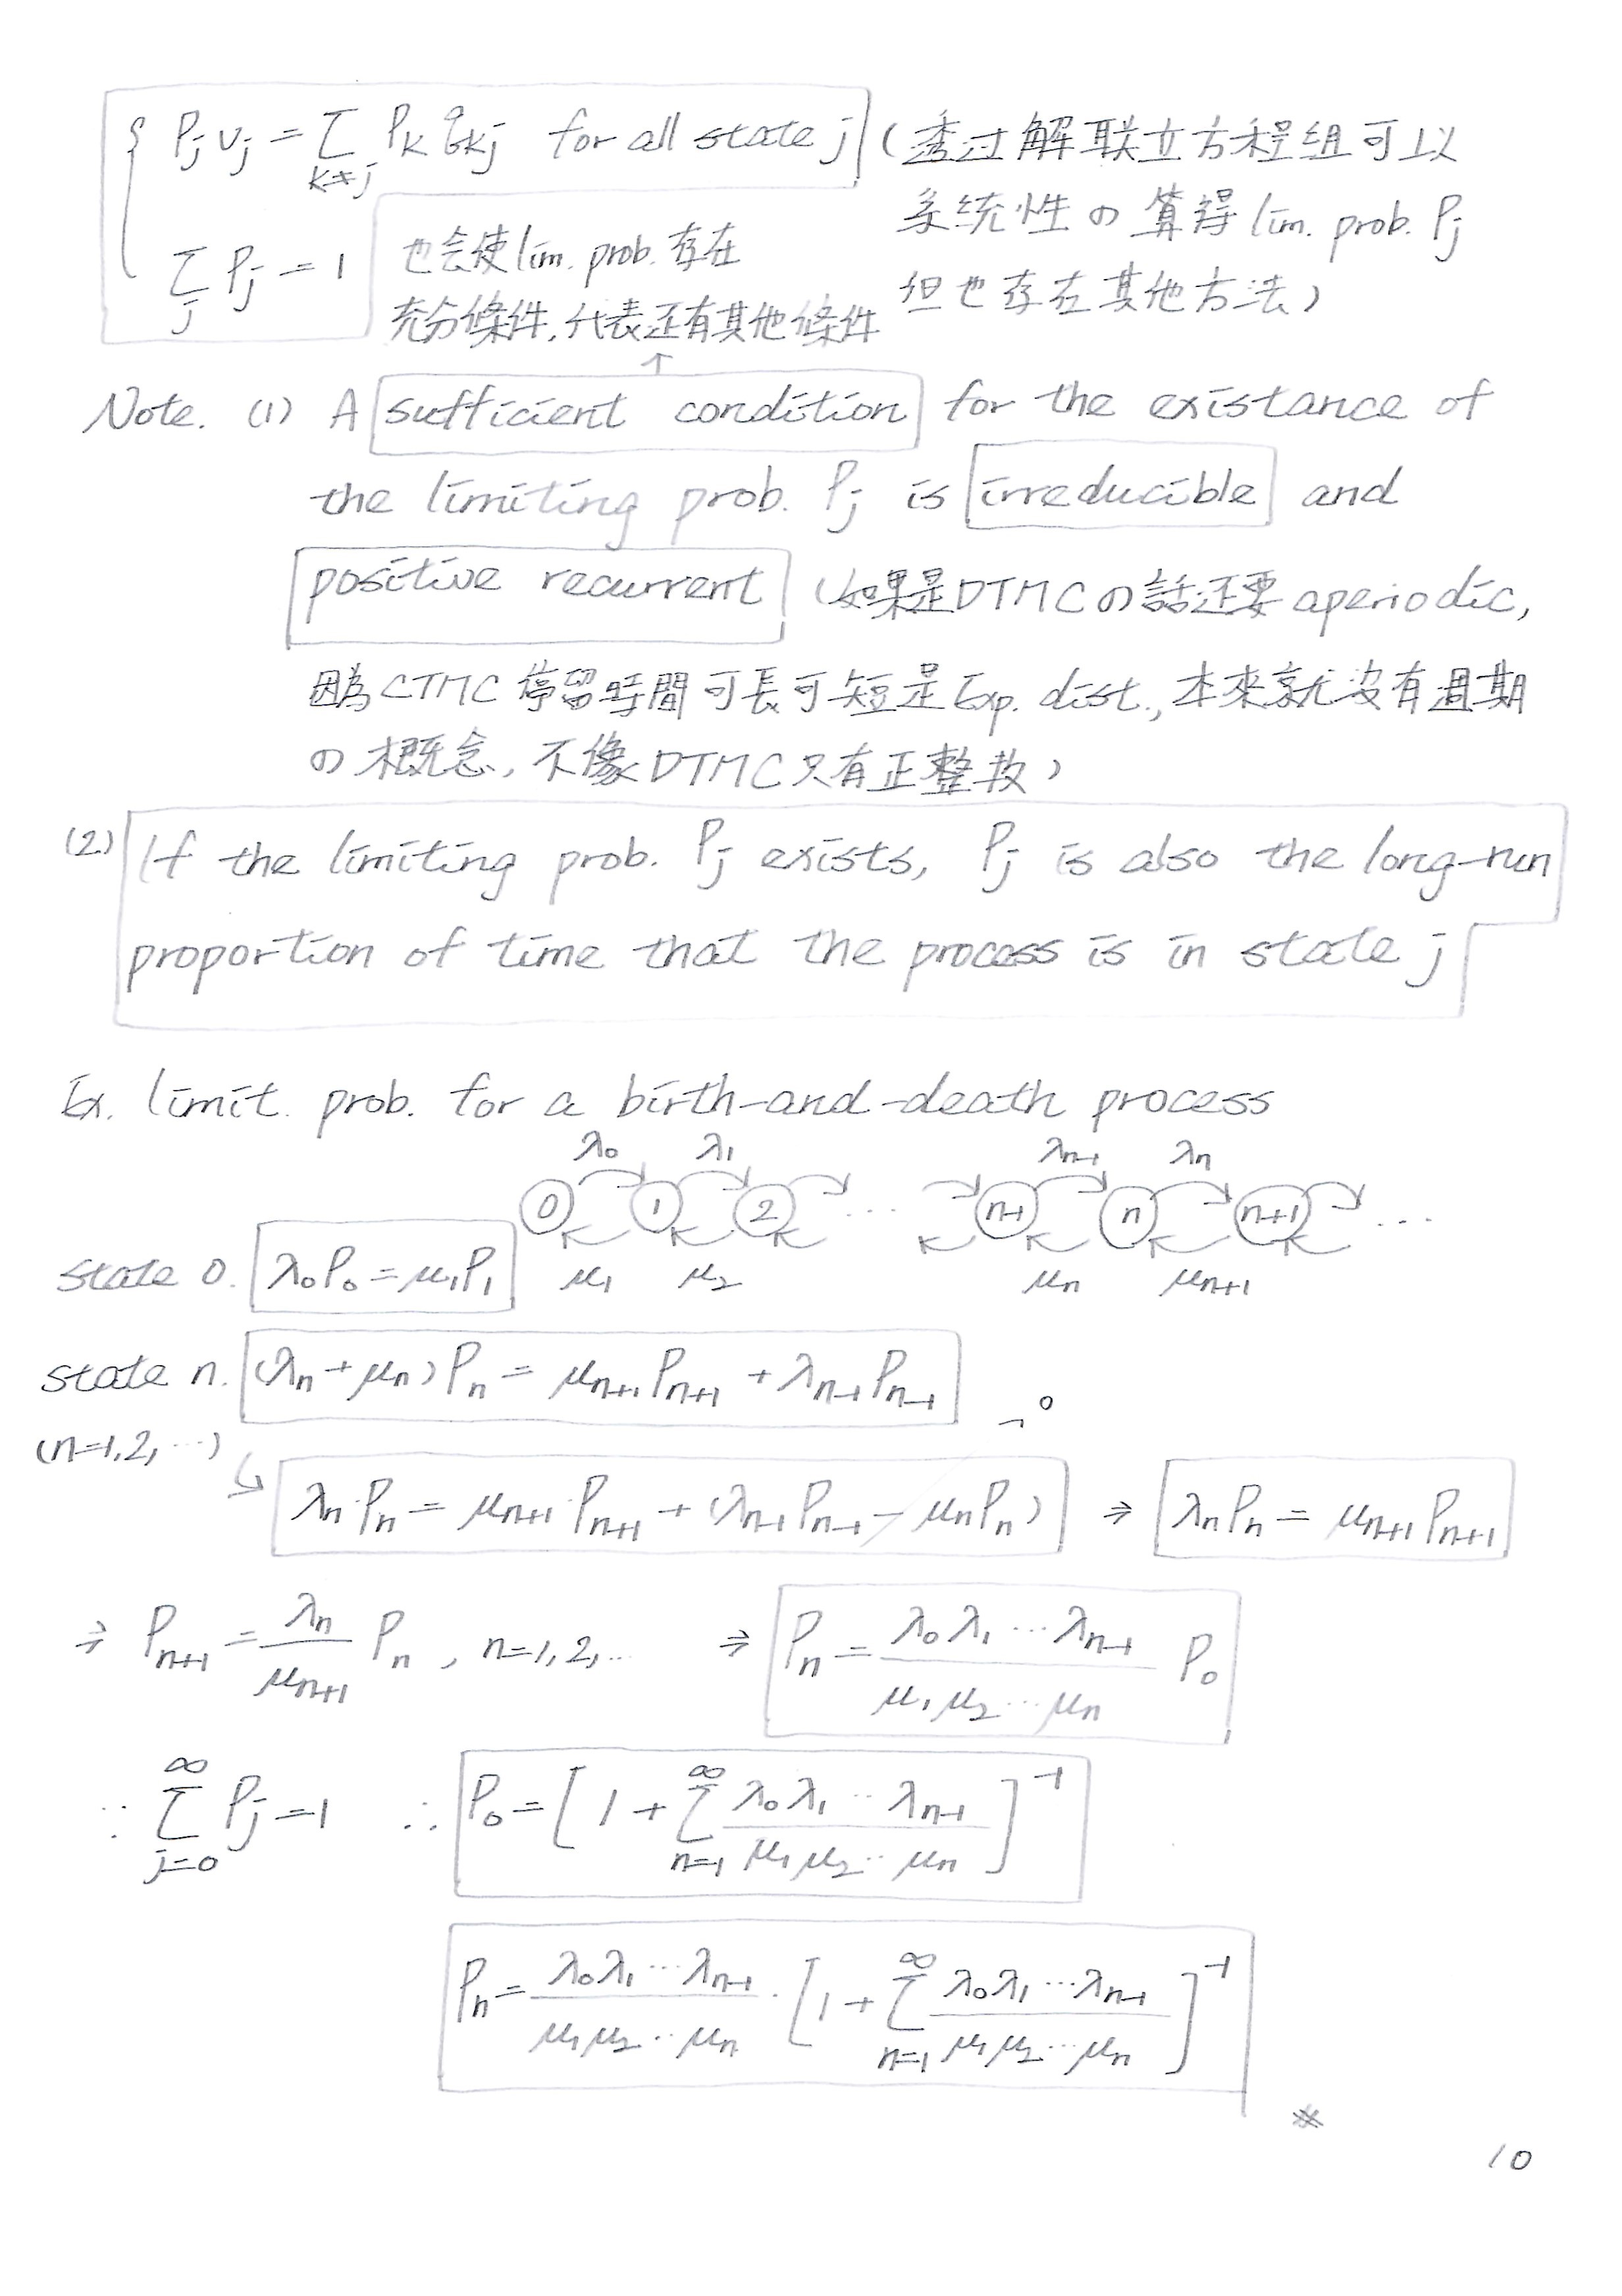 { Pj vj = Σ_{k≠j} Pk qkj for all state j (透过解联立方程组可以
系統性の算得 lim. prob. Pj
Σ_j Pj = 1 也会使 lim. prob. 存在
但也存在其他方法)
充分條件,代表还有其他條件
↑
Note. (1) A sufficient condition for the existance of
the limiting prob. Pj is irreducible and
positive recurrent (如果是DTMCの話还要 aperiodic,
因為CTMC 停留時間可長可短是 Exp. dist., 本來就沒有週期
の概念, 不像DTMC只有正整数)
(2) If the limiting prob. Pj exists, Pj is also the long-run
proportion of time that the process is in state j
Ex. limit. prob. for a birth-and-death process
λ0 λ1 λn-1 λn
0 1 2 ... n-1 n n+1 ...
μ1 μ2 μn μn+1
state 0. λ0P0 = μ1P1
state n. (λn + μn)Pn = μn+1 Pn+1 + λn-1 Pn-1
(n=1,2,...)
0
↳ λn Pn = μn+1 Pn+1 + (λn-1 Pn-1 - μn Pn) ⇒ λn Pn = μn+1 Pn+1
⇒ Pn+1 = λn/μn+1 Pn, n=1,2,... ⇒ Pn = (λ0 λ1 ... λn-1)/(μ1 μ2 ... μn) P0
∵ Σ_{j=0}^∞ Pj = 1 ∴ P0 = [1 + Σ_{n=1}^∞ (λ0 λ1 ... λn-1)/(μ1 μ2 ... μn)]^-1
Pn = (λ0 λ1 ... λn-1)/(μ1 μ2 ... μn) · [1 + Σ_{n=1}^∞ (λ0 λ1 ... λn-1)/(μ1 μ2 ... μn)]^-1
※
10